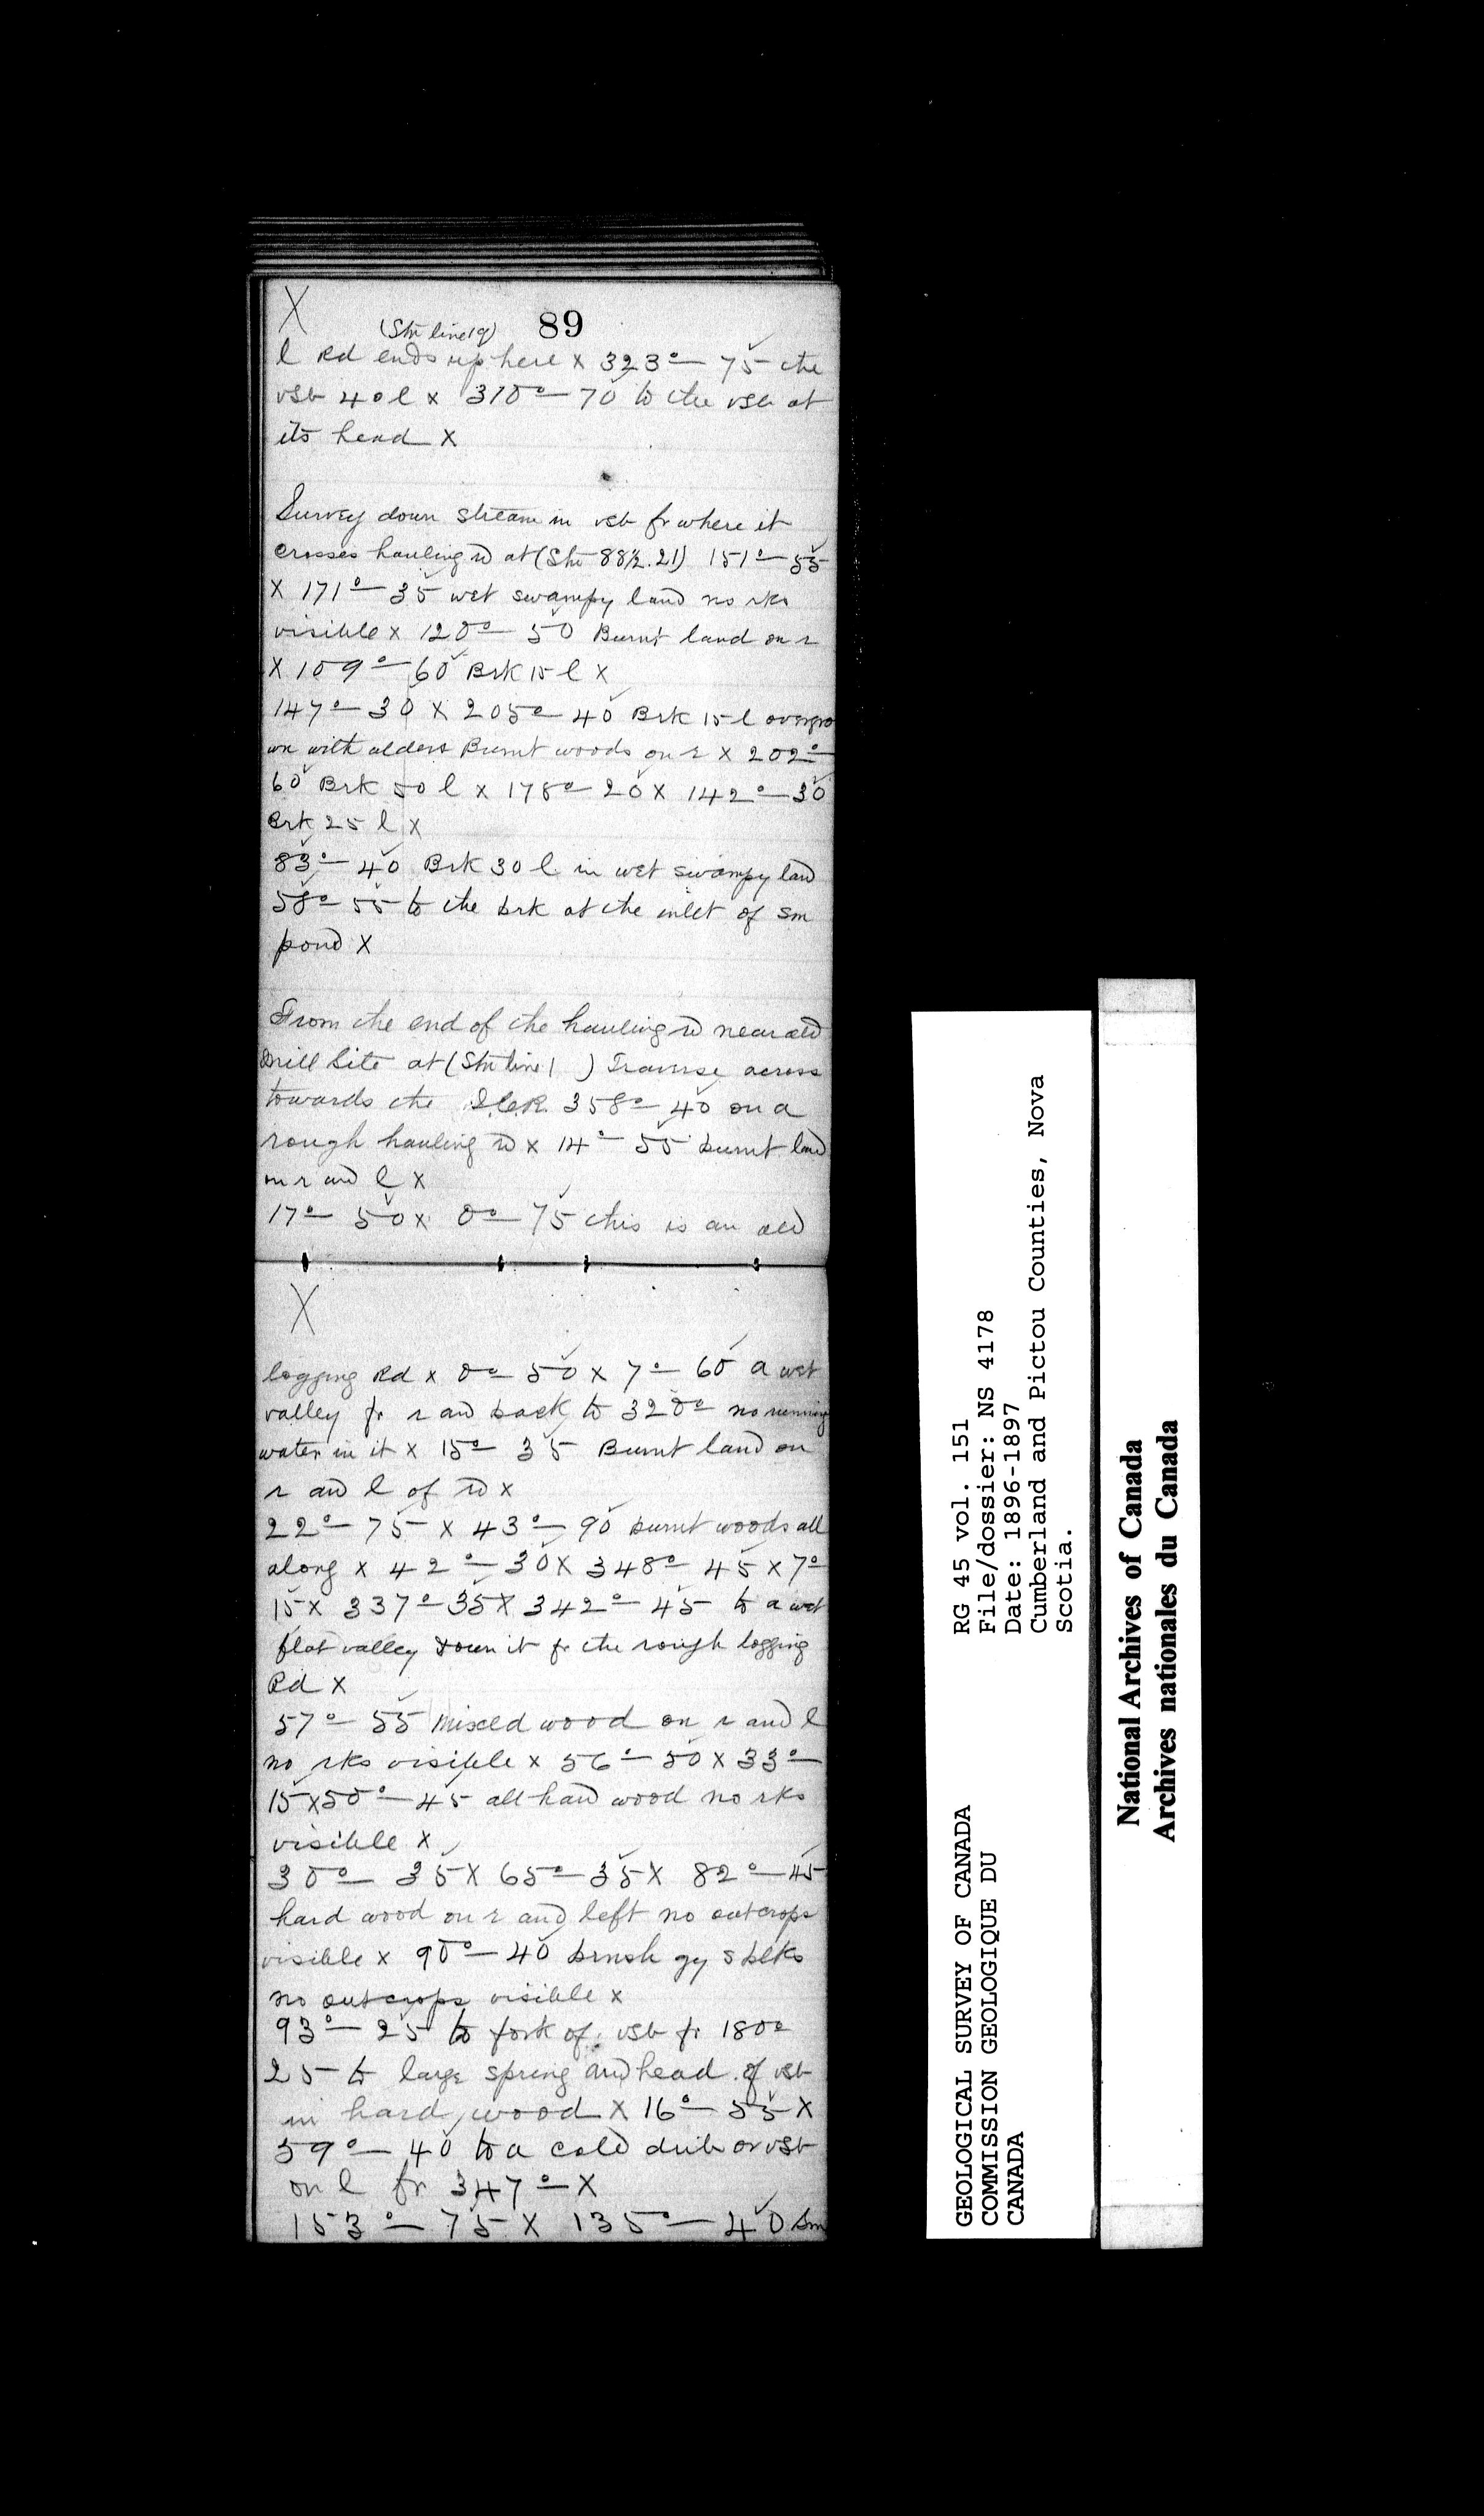 X
(Stn line 19) 89
l Rd ends up here x 323° — 75 the
vsb 40 l x 310° — 70 to the vsb at
its head X
Survey down stream in vsb fr where it
crosses hauling rd at (Stn 88½.21) 151° — 55
X 171° — 35 wet swampy land no rks
visible x 120° — 50 Burnt land on r
X 109° — 60 Brk 15 l X
147° — 30 X 205° — 40 Brk 15 l overgro
wn with alders Burnt woods on r X 202° —
60 Brk 50 l x 178° — 20 X 142° — 30
Brk 25 l X
83° — 40 Brk 30 l in wet swampy land
58° — 55 to the brk at the inlet of sm
pond X
From the end of the hauling rd near old
Mill Site at (Stn line 1 ) Traverse across
towards the I.C.R. 358° — 40 on a
rough hauling rd x 14° — 55 burnt land
on r and l X
17° — 50 x 0° — 75 this is an old
X
logging Rd x 0° — 50 x 7° — 60 a wet
valley fr r and back to 320° no running
water in it x 15° — 35 Burnt land on
r and l of rd x
22° — 75 — X 43° — 90 burnt woods all
along x 42° — 30 X 348° — 45 x 7° —
15 X 337° — 35 X 342° — 45 to a wet
flat valley down it fr the rough logging
Rd X
57° — 55 mixed wood on r and l
no rks visible x 56° — 50 X 33° —
15 X 50° — 45 all hard wood no rks
visible X
30° — 35 X 65° — 35 X 82° — 45
hard wood on r and left no outcrops
visible x 90° — 40 brnsh gy s blks
no outcrops visible x
93° — 25 to fork of vsb fr 180°
25 to large spring and head of vsb
in hard wood X 16° — 55 X
59° — 40 to a cold drib or vsb
on l fr 347° — X
153° — 75 X 135° — 40 sm
GEOLOGICAL SURVEY OF CANADA
COMMISSION GEOLOGIQUE DU
CANADA
RG 45 vol. 151
File/dossier: NS 4178
Date: 1896-1897
Cumberland and Pictou Counties, Nova
Scotia.
National Archives of Canada
Archives nationales du Canada